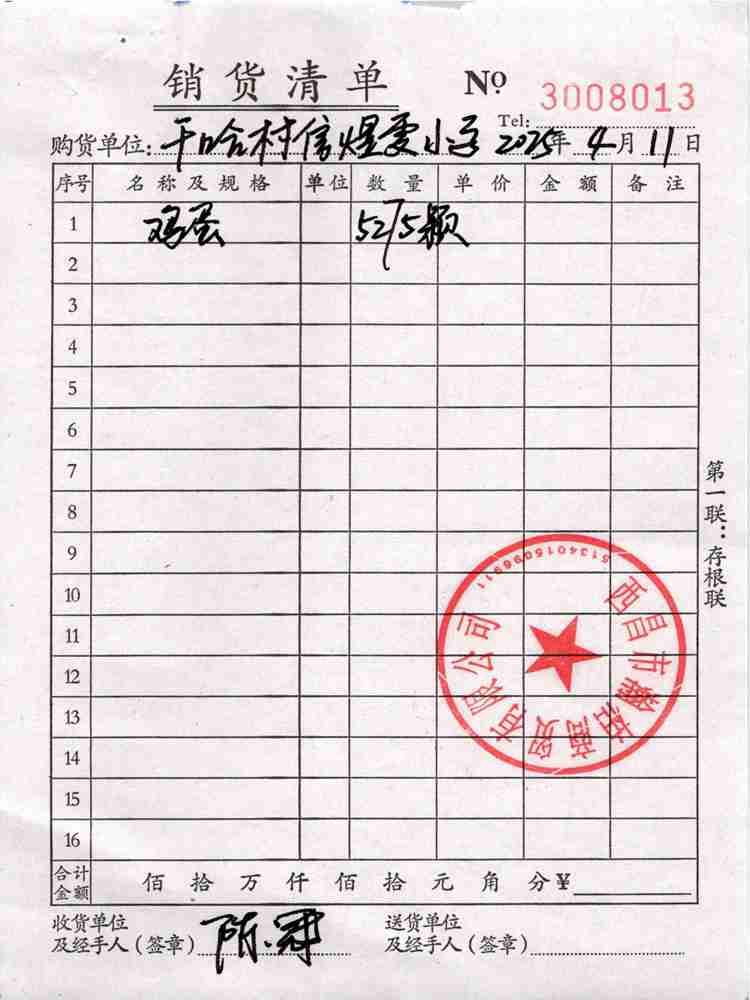 销货清单 Nº 3008013
Tel:
购货单位: 干哈村信煜雯小学 2025年4月11日
序号 名称及规格 单位 数量 单价 金额 备注
1 鸡蛋 5275颗
2
3
4
5
6
7
8
9
10
11
12
13
14
15
16
合计金额 佰拾万仟佰拾元角分¥
收货单位 送货单位
及经手人(签章) 陈冠 及经手人(签章)
第一联:存根联
西昌市 商贸有限公司
5134015096911